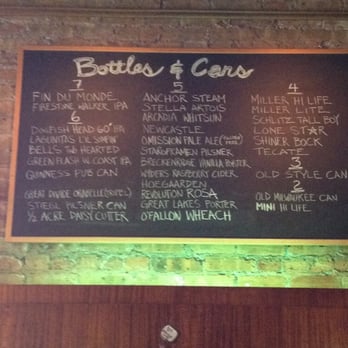 Bottles & Cans
7
FIN DU MONDE
FIRESTONE WALKER IPA
6
DOGFISH HEAD 60° IPA
LAGUNITAS LIL SUMPIN
BELLS TWO HEARTED
GREEN FLASH W. COAST IPA
GUINNESS PUB CAN
GREAT DIVIDE
STIEGL PILSNER CAN
½ ACRE DAISY CUTTER
5
ANCHOR STEAM
STELLA ARTOIS
ARCADIA WHITSUN
NEWCASTLE
OMISSION PALE ALE (GLUTEN FREE)
STAROPRAMEN PILSNER
BRECKENRIDGE VANILLA PORTER
WYDERS RASPBERRY CIDER
HOEGAARDEN
REVOLUTION ROSA
GREAT LAKES PORTER
O'FALLON WHEACH
4
MILLER HI LIFE
MILLER LITE
SCHLITZ TALL BOY
LONE STAR
SHINER BOCK
TECATE
3
OLD STYLE CAN
2
OLD MILWAUKEE CAN
MINI HI LIFE